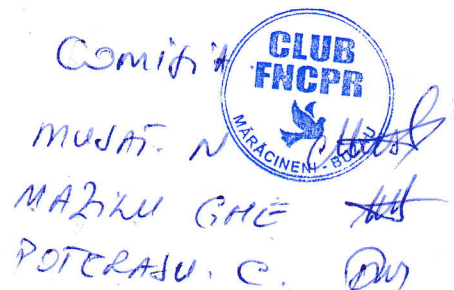 Comisia
CLUB
FNCPR
MĂRĂCINENI - BUZĂU
MUSAT. N
MAZILU GHE
POTERASU. C.